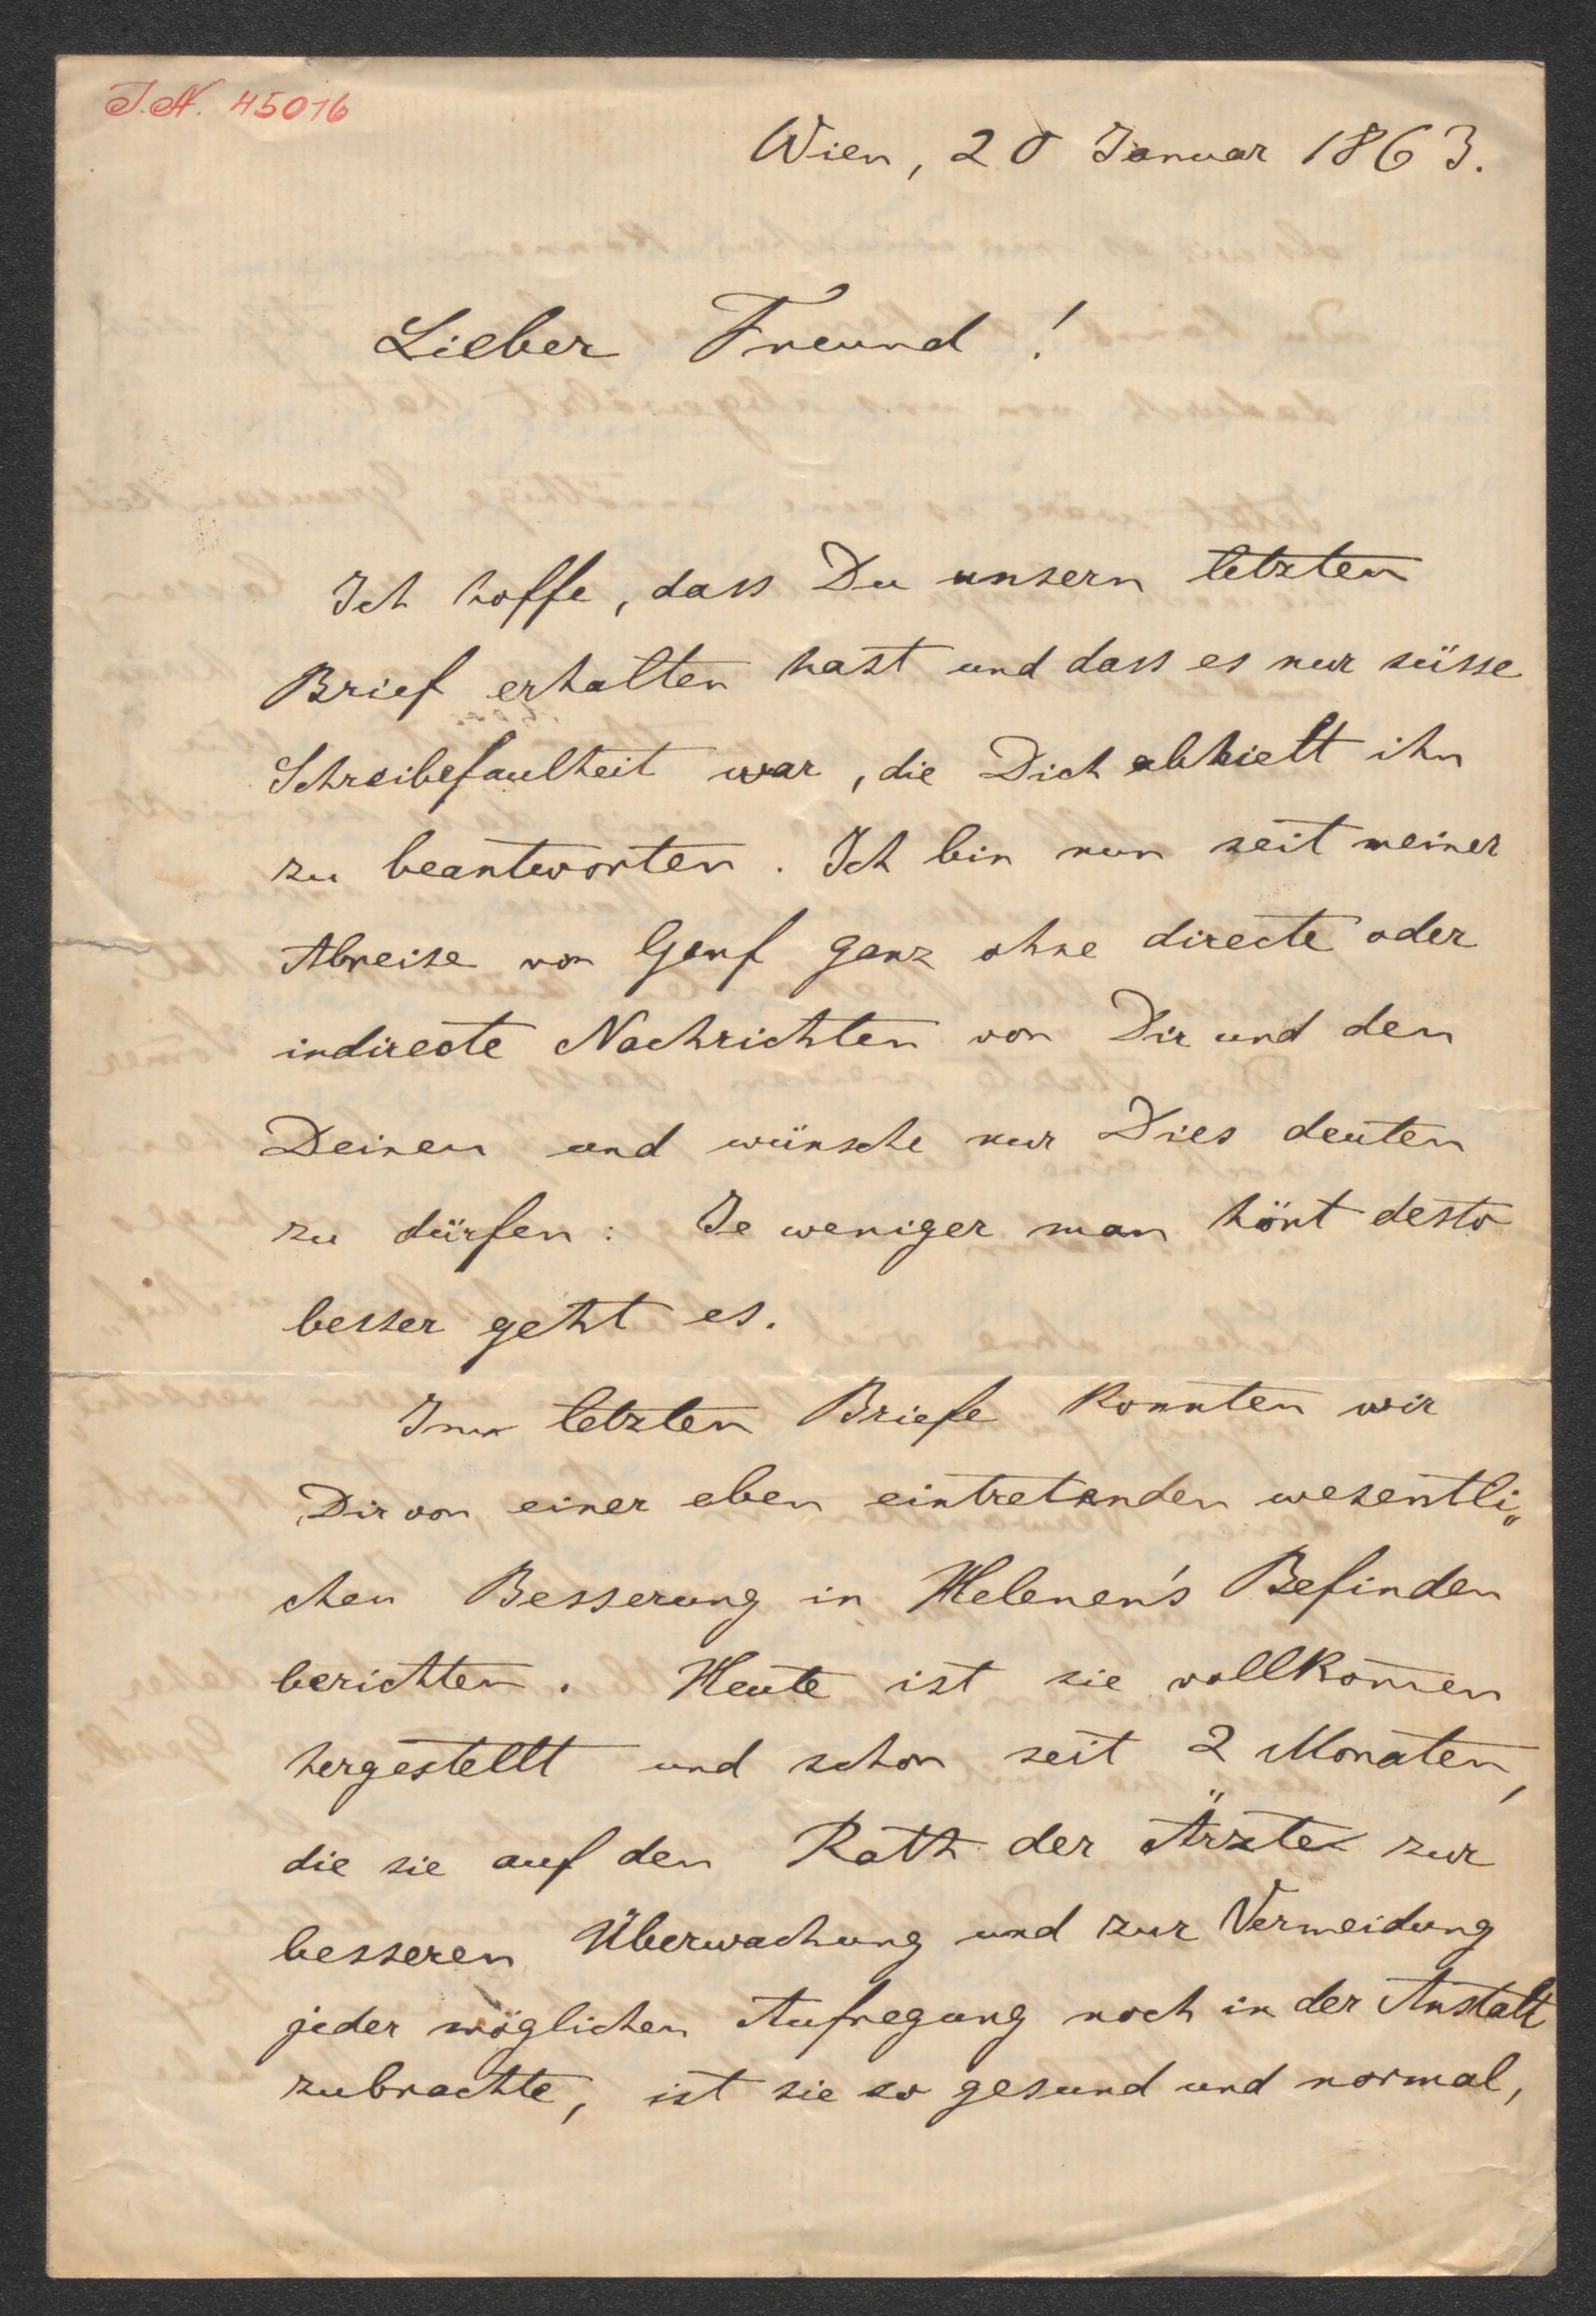 I.N. 45016
Wien, 20 Januar 1863.
Lieber Freund!
Ich hoffe, dass Du unsern letzten
Brief erhalten hast und dass es nur süsse
Schreibefaulheit war, die Dich abhielt ihn
zu beantworten. Ich bin nun seit meiner
Abreise von Genf ganz ohne directe oder
indirecte Nachrichten von Dir und den
Deinen und wünsche nur Dies deuten
zu dürfen: Je weniger man hört desto
besser geht es.
Im letzten Briefe konnten wir
Dir von einer eben eintretenden wesentli„
chen Besserung in Helenen's Befinden
berichten. Heute ist sie vollkom̅en
hergestellt und schon seit 2 Monaten,
die sie auf den Rath der Ärzte zur
besseren Überwachung und zur Vermeidung
jeder möglichen Aufregung noch in der Anstalt
zubrachte, ist sie so gesund und normal,